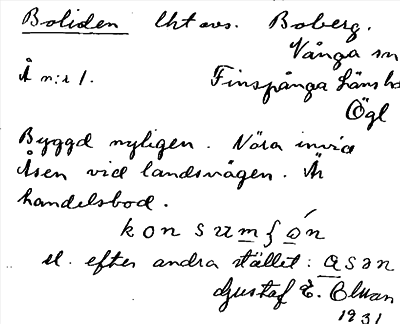 Boliden lht avs. Boberg.
Vånga sn
Å n:r 1. Finspånga läns hd
Ögl
Byggd nyligen. Nära invid
Åsen vid landsvägen. Är
handelsbod.
konsum
el. efter andra stället: asən
Gustaf E. Olsson
1931